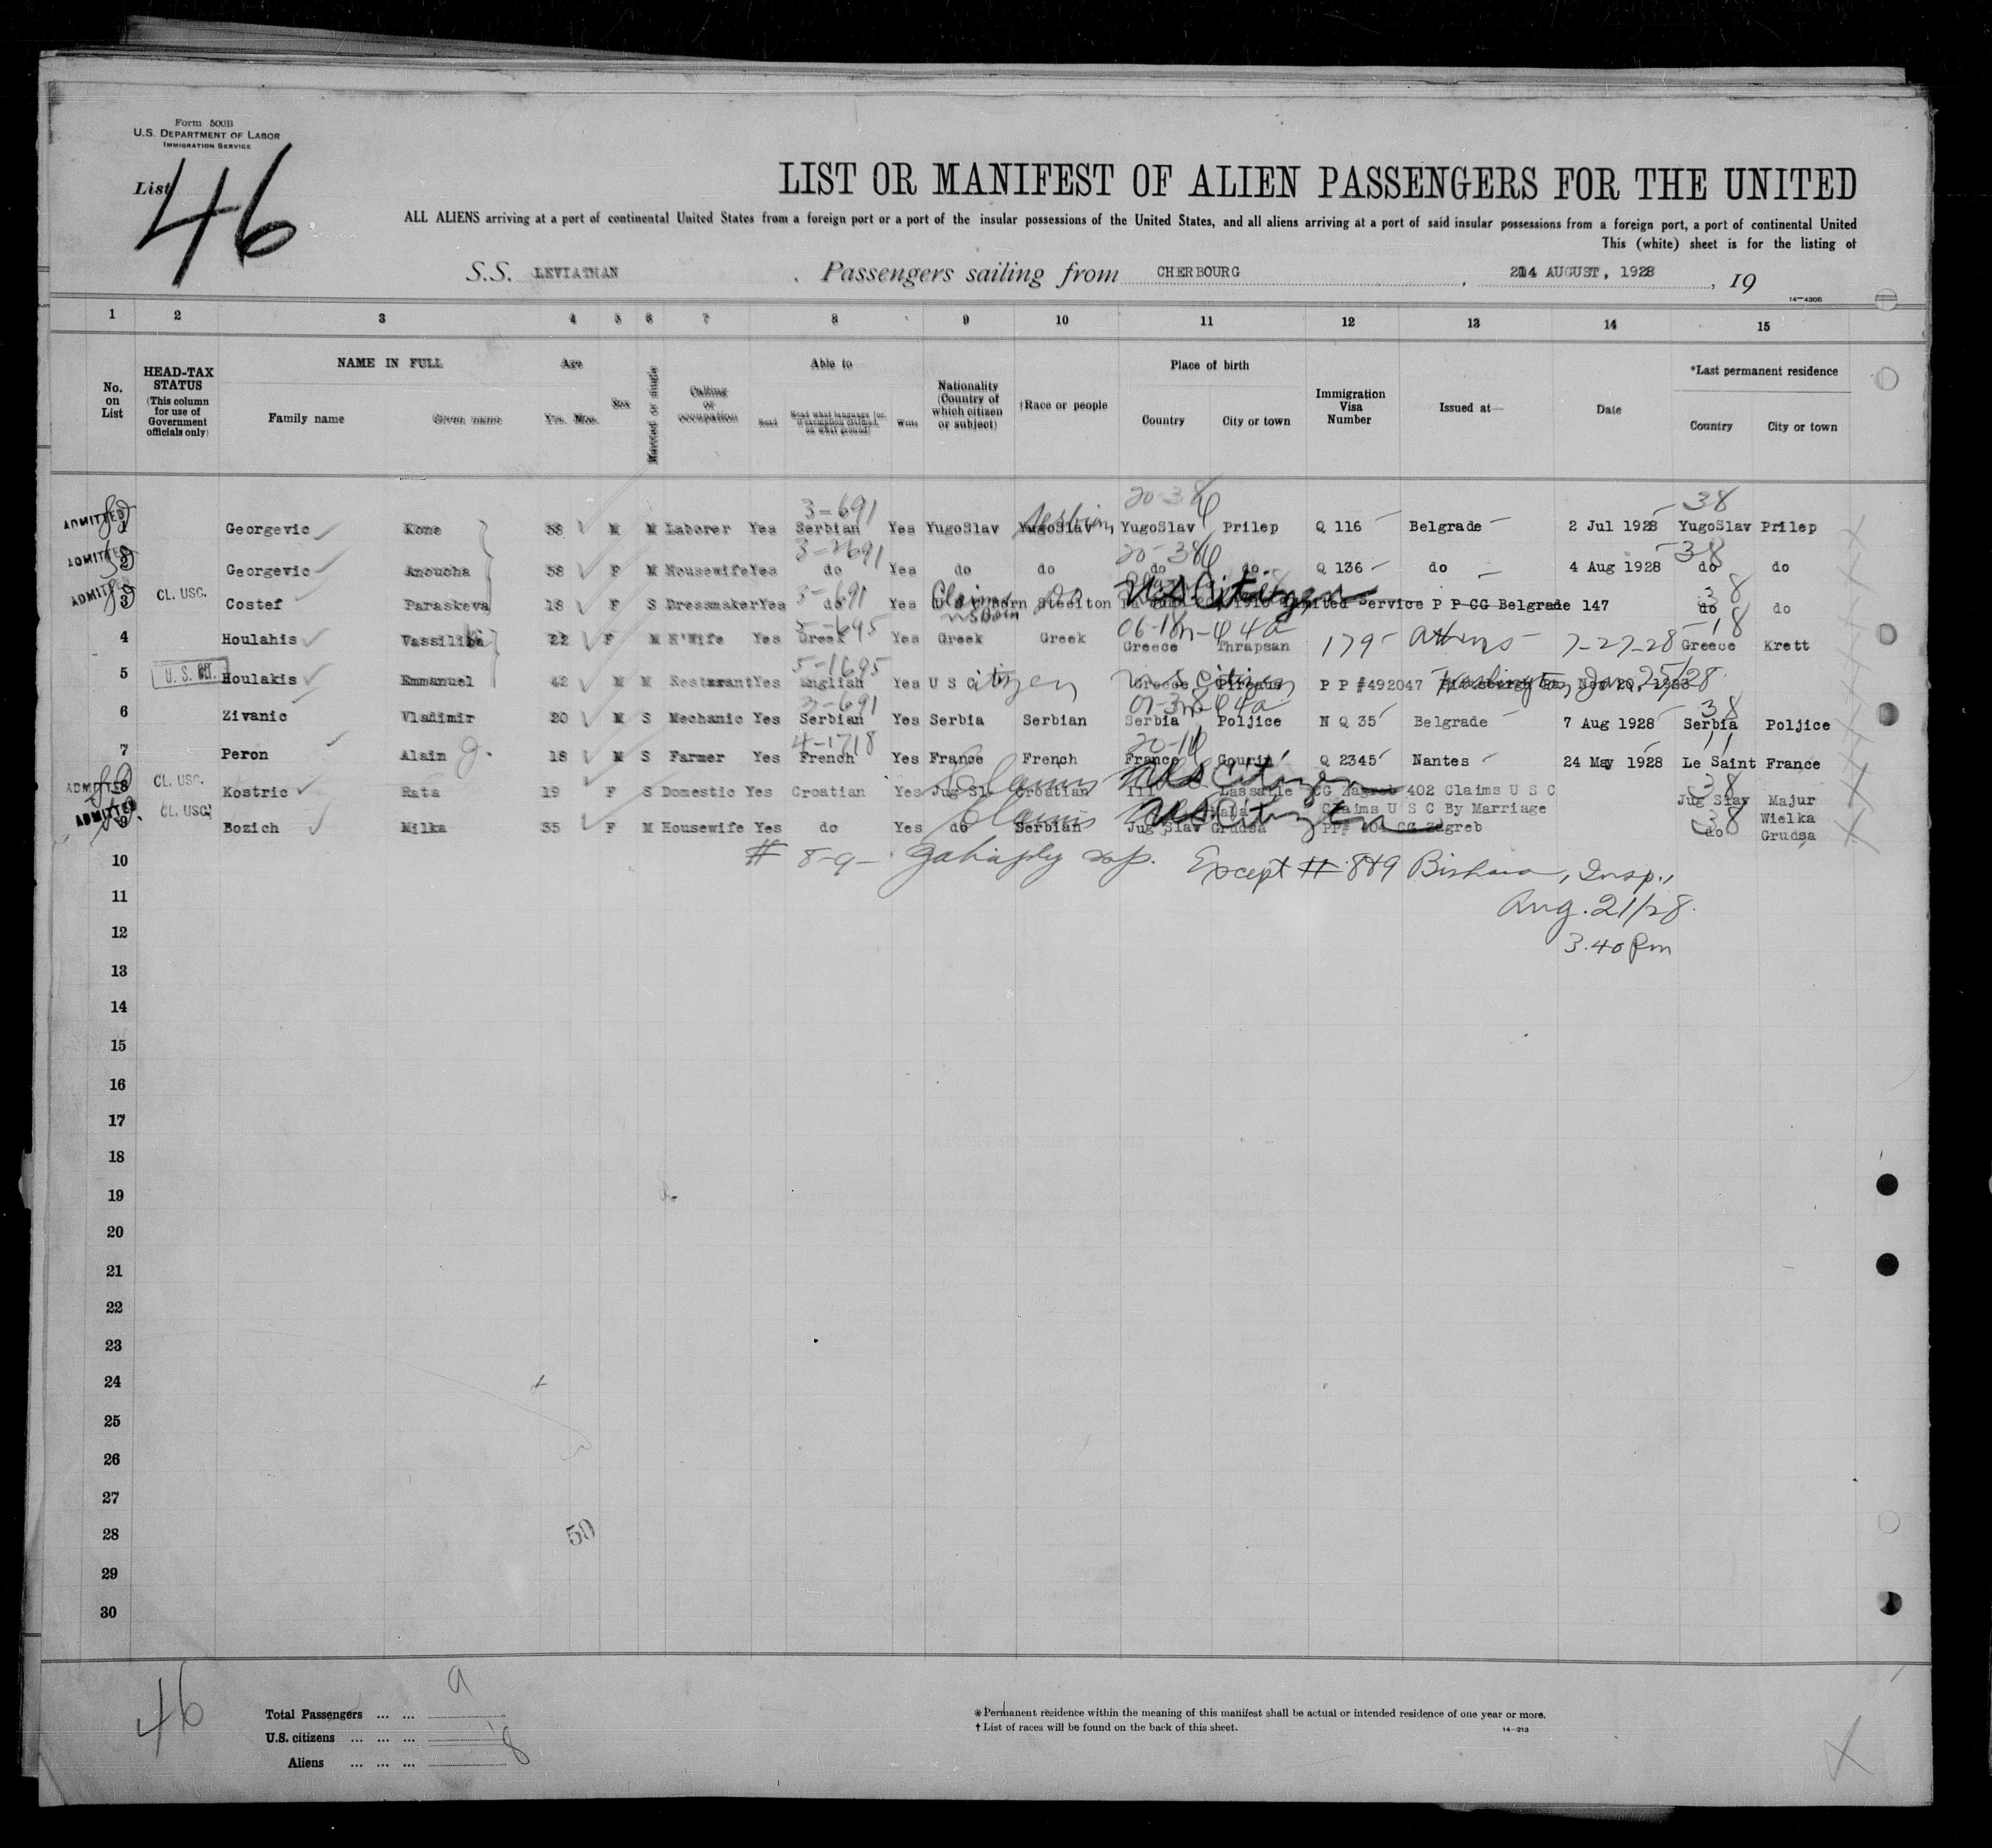 Form 500B
U.S. DEPARTMENT OF LABOR
IMMIGRATION SERVICE
List 46
LIST OR MANIFEST OF ALIEN PASSENGERS FOR THE UNITED
ALL ALIENS arriving at a port of continental United States from a foreign port or a port of the insular possessions of the United States, and all aliens arriving at a port of said insular possessions from a foreign port, a port of continental United
This (white) sheet is for the listing of
S.S. LEVIATHAN , Passengers sailing from CHERBOURG , AUGUST, 1928 , 19
14—430B
1 2 3 4 5 6 7 8 9 10 11 12 13 14 15
No. on List HEAD-TAX STATUS (This column for use of Government officials only) NAME IN FULL Family name Given name Age Yrs. Mos. Sex Married or single Calling or occupation Able to Read Read what language [or, if exemption claimed, on what ground] Write Nationality (Country of which citizen or subject) †Race or people Place of birth Country City or town Immigration Visa Number Issued at— Date *Last permanent residence Country City or town
3-691 20-38 38
ADMITTED 1 Georgevic Kone 58 M M Laborer Yes Serbian Yes YugoSlav YugoSlav Serbian YugoSlav Prilep Q 116 Belgrade 2 Jul 1928 YugoSlav Prilep
3-2691 20-38 38
ADMITTED 2 Georgevic Anoucha 58 F M Housewife Yes do Yes do do do do Q 136 do 4 Aug 1928 do do
3-691 Claims US Citizen 38
ADMITTED 3 CL. USC. Costef Paraskeva 18 F S Dressmaker Yes do Yes U S C Born Steelton Pa 1910 Limited Service P P CG Belgrade 147 do do
5-695 06-18 18
4 Houlahis 22 F M H'Wife Yes Greek Yes Greek Greek Greece Thrapsan 179 Athens 7-27-28 Greece Krett
5-1695 U S Citizen
5 U. S. Houlakis Emmanuel 42 M M Restaurant Yes English Yes U S Citizen Greece Pireaus P P #492047 Washington Jan 25/28
3-691 38
6 Zivanic Vladimir 20 M S Mechanic Yes Serbian Yes Serbia Serbian Serbia Poljice N Q 35 Belgrade 7 Aug 1928 Serbia Poljice
4-1718 20-11 11
7 Peron Alain J. 18 M S Farmer Yes French Yes France French France Gourin Q 2345 Nantes 24 May 1928 Le Saint France
Claims US Citizen 38
ADMITTED 8 CL. USC. Kostric Rata 19 F S Domestic Yes Croatian Yes Jug Sl Croatian Ill Lassalle CG Zagreb 402 Claims U S C Jug Slav Majur
Claims US Citizen Claims U S C By Marriage 38 Wielka
ADMITTED 9 CL. USC. Bozich Milka 35 F M Housewife Yes do Yes do Serbian Jug Slav Grudsa PP# 404 CG Zagreb do Grudsa
10 # 8-9- Except # 8&9 Insp.,
11 Aug. 21/28.
12 3.40 Pm
13
14
15
16
17
18
19
20
21
22
23
24
25
26
27
28 50
29
30
46
Total Passengers ... ... 9
U.S. citizens ... ... ... 1
Aliens ... ... ... 8
*Permanent residence within the meaning of this manifest shall be actual or intended residence of one year or more.
†List of races will be found on the back of this sheet.
14—213